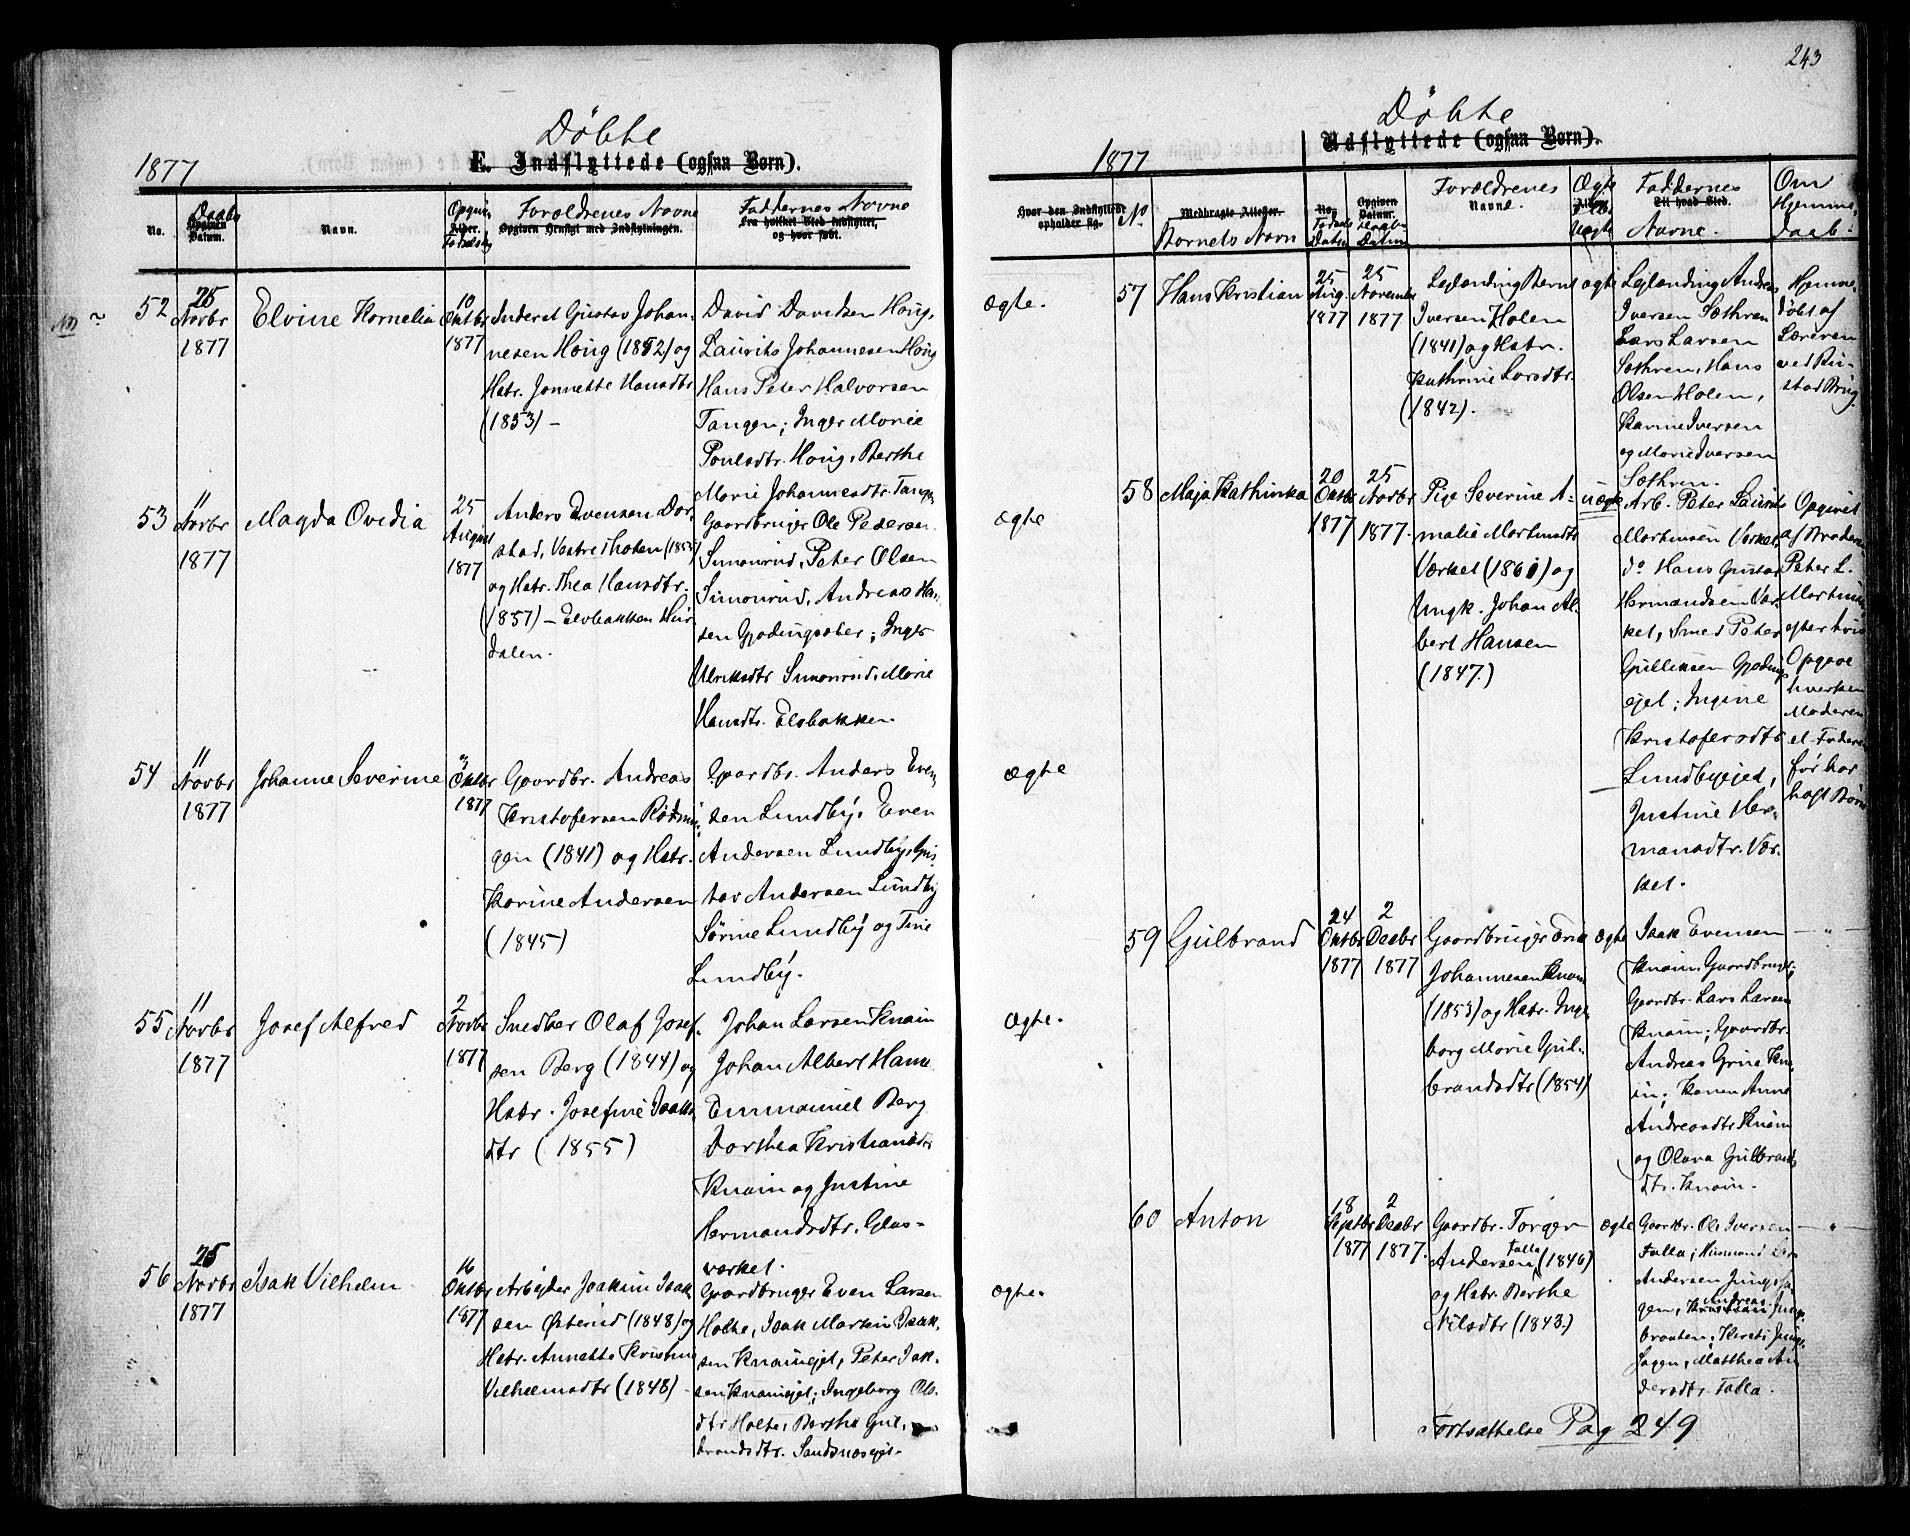 243
Döbte
E. Indflyttede (ogsaa Børn).
1877
No.
Daabs
Opgiven Datum.
Navn.
Alder.
Forældrenes Navne
Opgiven Hensigt med Indflytningen.
Faddernes Navne
Fra hvilket Sted indflyttet, og hvor født.
52
25
Novbr
1877
Elvine Kornelia
10
Oktbr
1877
Gustav Johan-
nesen Houg (1852) og
Hstr. Jonnette Hansdtr
(1853) –
David Davidsen Houg,
Laurits Johannesen Houg
Hans Peter Halvorsen
Tangen; Inger Marie
Poulsdtr. Houg, Berthe
Marie Johannesdtr. Tangen
53
11
Novbr
1877
Magda Ovidia
25
August
1877
Anders Evensen Dor-
stad,
og Hstr. Thea Hansdtr.
(1857) – Elvbakken Hur-
dalen.
Gaardbruger Ole Pedersen
Simonrud, Peter Olsen
Simonrud, Andreas Han-
sen ; Inger
Ulriksdtr Simonrud, Marie
Hansdtr. Elvbakken.
54
11
Novbr
1877
Johanne Severine
Oktbr
1877
Gaardbr. Andreas
Kristofersen
gen (1841) og Hstr.
Karine Andersen
(1845)
Gaardbr. Anders Even-
sen Lundby, Even
Andersen Lundby, Gus-
tav Andersen Lundby
Sørine Lundby og Tine
Lundby.
55
11
Novbr
1877
Josef Alfred
2
Novbr
1877
Snedker Olaf Josef-
sen Berg (1844) og
Hstr. Josefine Isaks
dtr (1855)
Johan Larsen Knain
Johan Albert Hans
Emmanuel Berg
Dorthea Kristiansdtr
Knain og Justine
Hermandsdtr. Glas-
værket.
56
25
Novbr
1877
Isak Vilhelm
16
Oktbr
1877
Arbejder Joakim Isak-
sen Østerud (1848) og
Hstr. Annette Kristine
Vilhelmsdtr (1848) -
Gaardbruger Even Larsen
Holte, Isak Martin Isak-
sen Knainejet, Peter Isak-
sen Knainejet; Ingeborg Ols-
dtr Holte, Berthe Gul-
brandsdtr. Sandsnæsejet.
Döbte
Udflyttede (ogsaa Børn).
1877
Hvor den Indflyttede opholder sig.
No
Medbragte Attester.
Barnets Navn
No.
Fødsels Datum
Opgiven Datum.
Daabs Datum
Forældrenes
Navne.
Ægte
Uægte
Faddernes
Til hvad Sted.
Navne.
Om
Hjemme-
daab.
ægte.
57
Hans Kristian
25
Aug.
1877
25
November
1877
Leilænding Bernt
Iversen Holen
(1841) og Hstr.
Kathrine Larsdtr.
(1842).
ægte
Leilænding Andreas
Iversen Sæthren
Lars Larsen
Sæthren, Hans
Olsen Holen,
Karine Iversen
og Marie Iversen
Sæthren.
Hjemme-
døbt af
Læreren
ved Ru-
stad Brug.
ægte
58
Maja Kathinka
20
Oktbr
1877
25
Novbr
1877.
Pige Severine A-
malie Martinsdtr
Værket (1861) og
Ungk. Johan Al-
bert Hansen
(1847.)
uægte
Arb. Peter Laurits
Martinsen Værket,
do Hans Gustav
Hermandsen Vær-
ket, Smed Peter
Gulliksen
ejet; Ingine
Kristofersdtr
Lundbyejet,
Justine Her-
mansdtr. Vær-
ket.
Opgivet
af Broderen
Peter L.
Martinsen
efter hvis
Opgave
hverken
Moderen
el. Faderen
før har
havt Børn
ægte
59
Gulbrand
24
Oktbr
1877
2
Decbr
1877
Gaardbruger Erik
Johannesen Knain
(1853) og Hstr. Inge-
borg Marie Gul-
brandsdtr (1854)
ægte
Isak Evensen
Knain, Gaardbruger,
Gaardbr. Lars Larsen
Knain; Gaardbr.
Andreas Grine Kna-
in; Konen Anne
Andreasdtr Knain
og Olava Gulbrands-
dtr. Knain.
— " —
ægte.
60
Anton
18
Septbr
1877
2
Decbr
1877.
Gaardbr. Torger
Andersen Falla (1846)
og Hstr. Berthe
Nilsdtr (1843.)
ægte
Gaardbr. Ole Iversen
Falla;
Andersen
gen, Andreas
braaten,
Matthea An-
dersdtr. Falla.
— " —
ægte.
Fortsættelse Pag 249